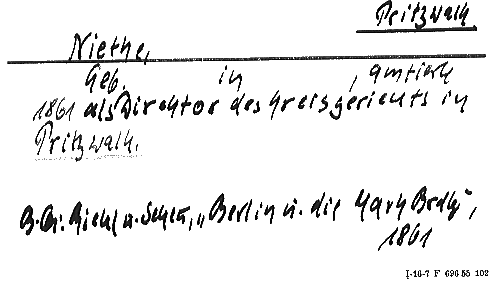 Pritzwalk.
Niethe,
Geb. in , amtiert
1861 als Direktor des Kreisgerichts in
Pritzwalk.
Riehl u. Scheu, „Berlin u. die Mark Brdbg",
1861
I-16-7 F 696 55 102